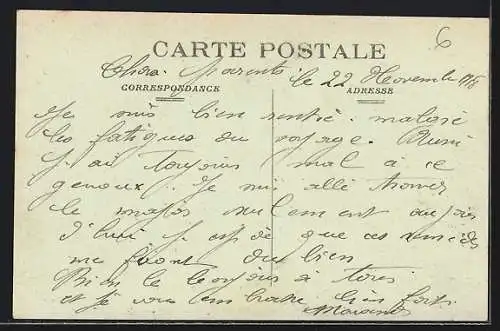 6
CARTE POSTALE
Chers Parents le 22 Novembre
CORRESPONDANCE
ADRESSE
Je suis bien rentré malgré
les fatigues du voyage. Aussi
j'ai toujours mal à ce
genoux. Je suis allé trouver
le major seulement aujour
d'hui j'espère que ces remèdes
me feront du bien
Bien le bonjour à tous
et je vous embrasse bien fort